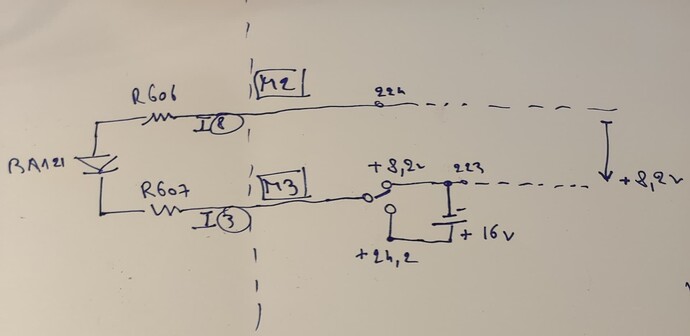 R606
M2
224
I 8
BA121
+8,2v
R607
M3
+8,2v
223
I 3
+ 16v
+24,2